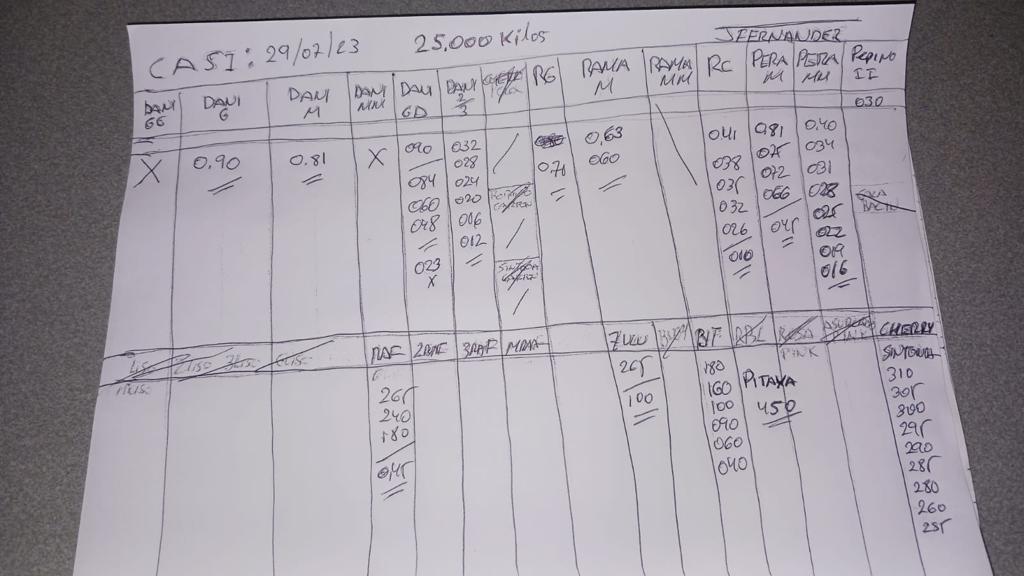 CASI: 29/07/23 25.000 Kilos JFERNANDEZ
DANI GG DANI G DANI M DANI MM DANI GD DANI 2/3 RG RAMA M RAMA MM RC PERA M PERA MM PEPINO II
030
X 0.90 0.81 X 090 032 0,63 041 0.81 0.40
028 0.71 060 038 075 034
084 024 035 072 031
060 020 032 066 028
048 016 026 045 025
012 010 022
023 019
X 016
RAF 2RAF 3RAF MRAF ZULU BIF CHERRY
PINK SINTONIA
265 265 180 310
240 100 160 PITAYA 305
180 100 450 300
045 090 295
060 290
040 285
280
260
255